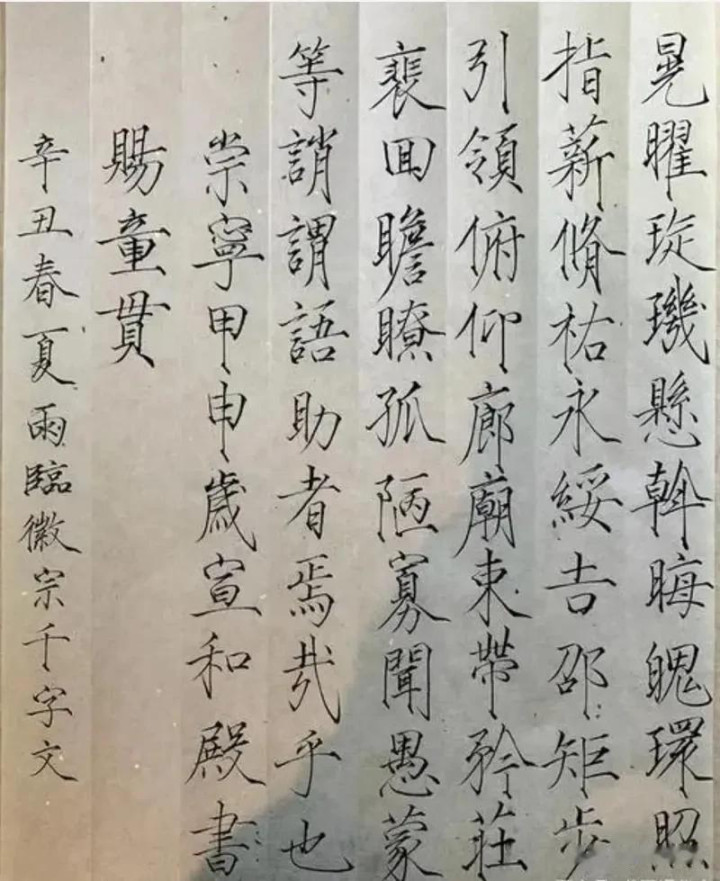 晃曜琁璣懸斡晦魄環照
指薪脩祜永綏吉邵矩步
引領俯仰廊廟束帶矜莊
裴回瞻瞭孤陋寡聞愚蒙
等誚謂語助者焉哉乎也
崇寧甲申歲宣和殿書
賜童貫
辛丑春夏雨臨徽宗千字文